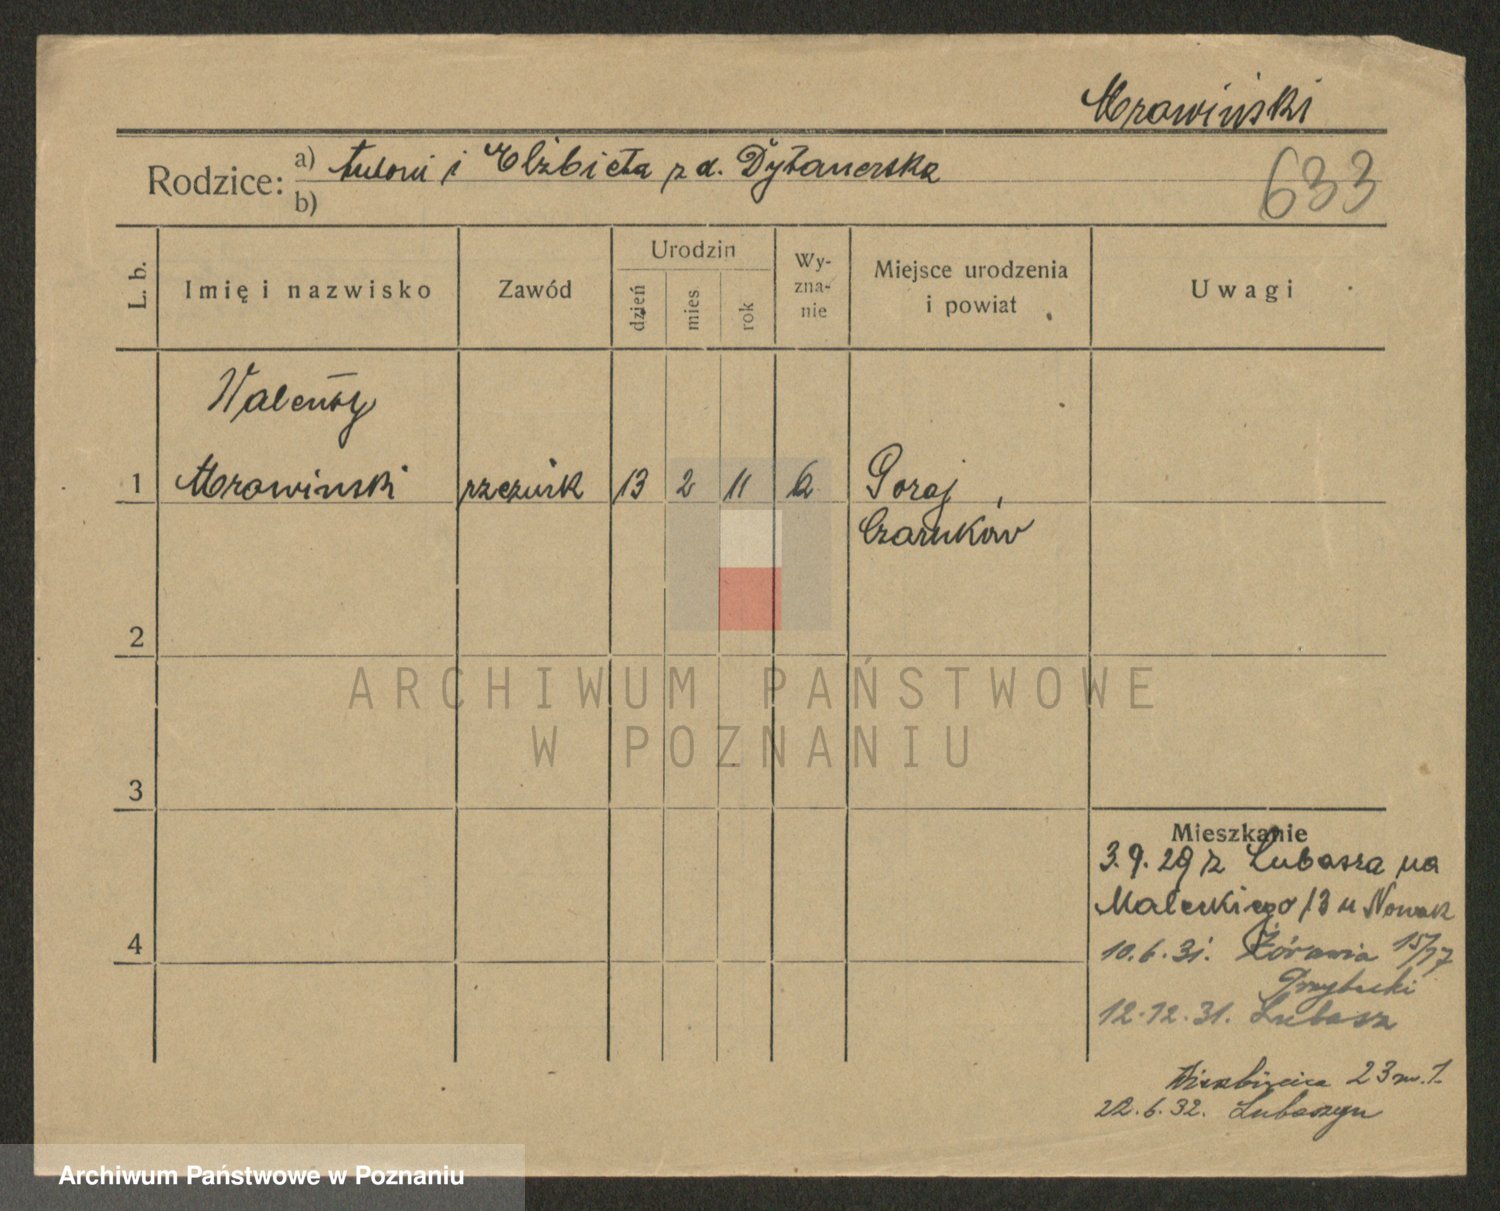 Mrowiński
Rodzice: a) Antoni i Elżbieta z d. Dyżanerska
b)
633
L. b.
Imię i nazwisko
Zawód
Urodzin
dzień
mies
rok
Wy-
zna-
nie
Miejsce urodzenia
i powiat
Uwagi
Walenty
1 Mrowinski rzeźnik 13 2 11 Goraj,
Czarnków
2
ARCHIWUM PAŃSTWOWE
W POZNANIU
3
Mieszkanie
3.9.29 z Lubasza na
Maleckiego 13 u Nowak
4
10.6.31. Żórawia 15/17
Przybecki
12.12.31. Lubasz
Wierzbięcice 23 m.1.
22.6.32. Lubaszyn
Archiwum Państwowe w Poznaniu